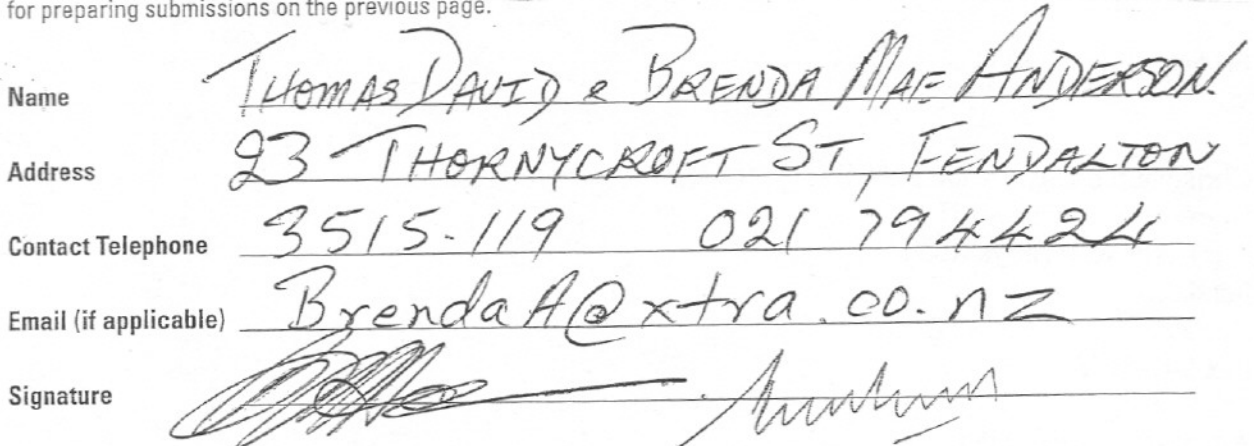 for preparing submissions on the previous page.
Name THOMAS DAVID & BRENDA MAE ANDERSON.
Address 23 THORNYCROFT ST, FENDALTON
Contact Telephone 3515-119 021 794424
Email (if applicable) BrendaA@xtra.co.nz
Signature